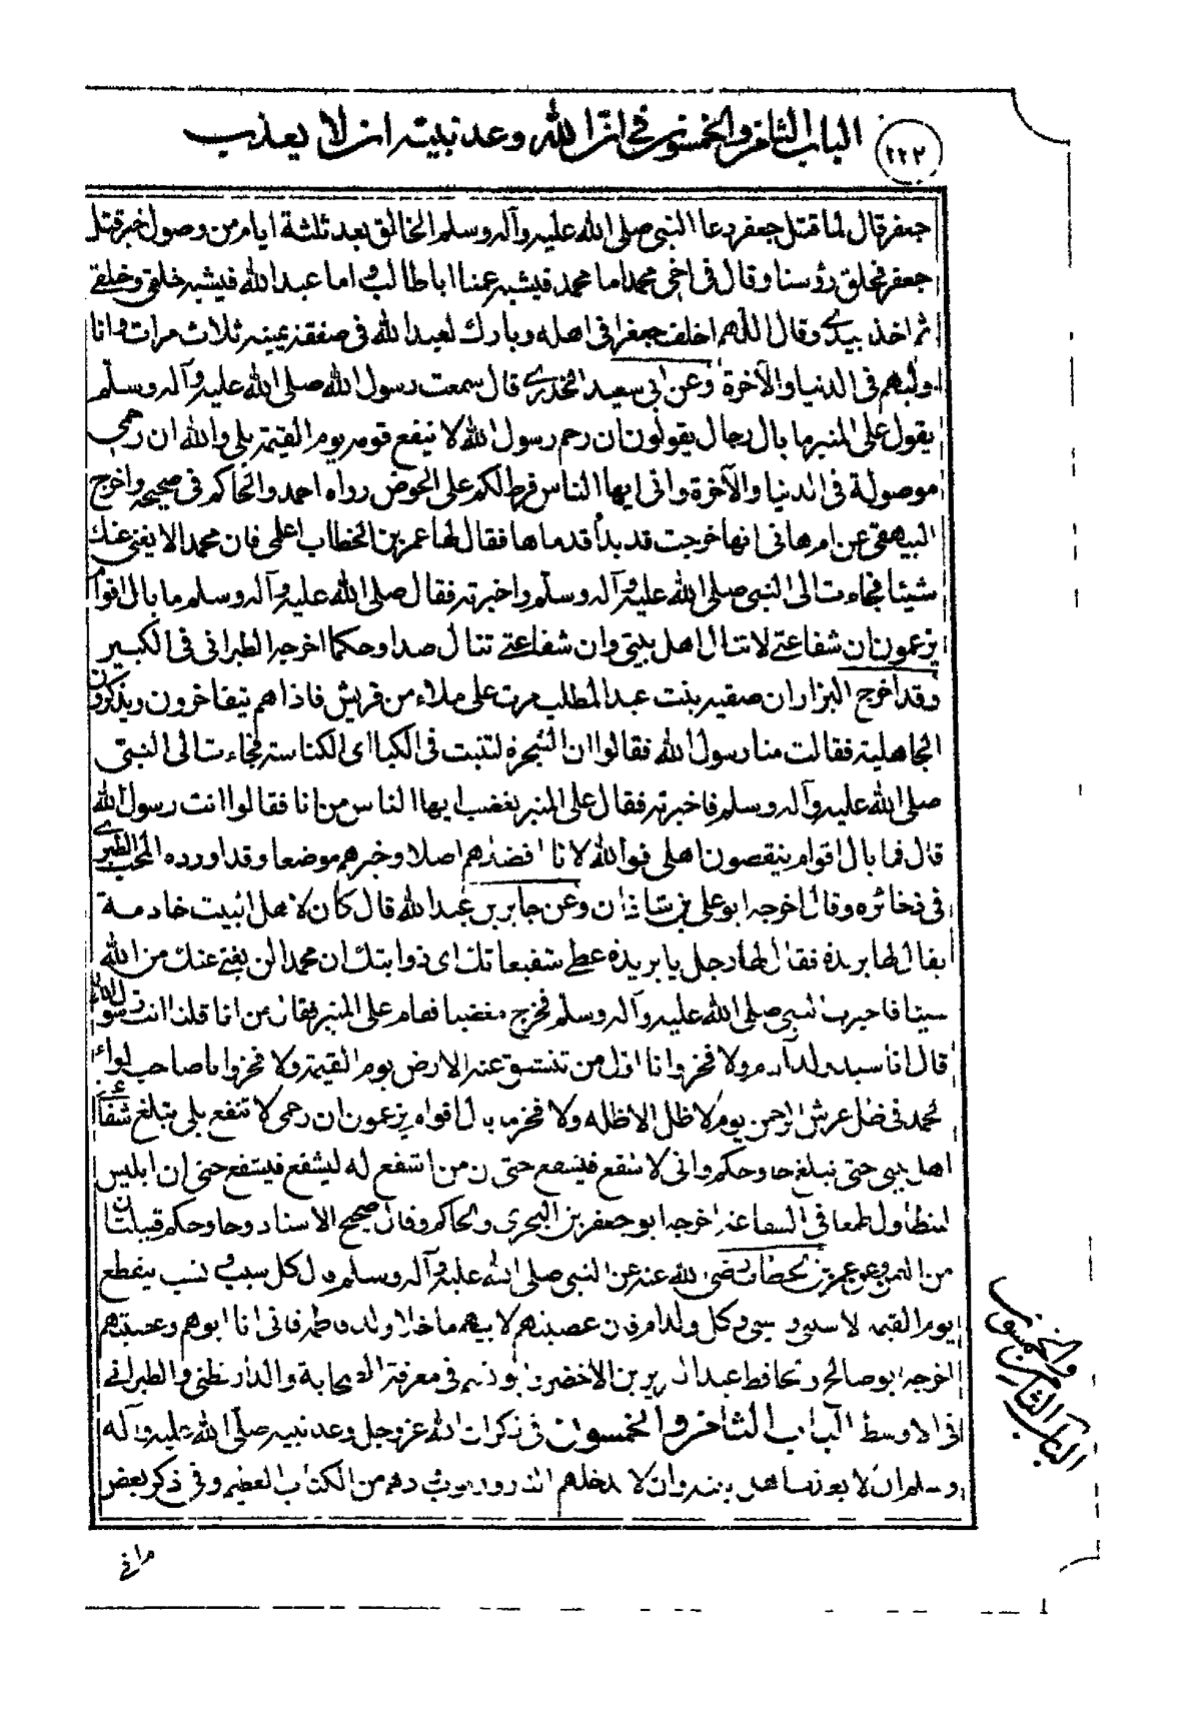 ٢٢٢
الباب الثامن والخمسون فى انّ الله وعد نبيته ان لا يعذب
جعفر قال لما قتل جعفر دعا النبى صلى الله عليه وآله وسلم الخالق بعد ثلثة ايام من وصول خبر قتل
جعفر فحلق رؤسنا وقال فى اخى محمد اما محمد فيشبه عمنا اباطالب واما عبد الله فيشبه خلقى وخلقى
ثم اخذ بيدى وقال اللهم اخلف جعفرا فى اهله وبارك لعبد الله فى صفقة يمينه ثلاث مرات وانا
وليهم فى الدنيا والآخرة وعن ابى سعيد الخدرى قال سمعت رسول الله صلى الله عليه وآله وسلم
يقول على المنبر ما بال رجال يقولون ان رحم رسول الله لا ينفع قومه يوم القيمة بلى والله ان رحمى
موصولة فى الدنيا والآخرة وانى ايها الناس فرط لكم على الحوض رواه احمد والحاكم فى صحيحه واخرج
البيهقى عن ام هانى انها خرجت قد بدأ قدماها فقال لها عمر بن الخطاب اعلمى فان محمدا لا يغنى عنك
شيئا فجاءت الى النبى صلى الله عليه وآله وسلم واخبرته فقال صلى الله عليه وآله وسلم ما بال اقوام
يزعمون ان شفاعتى لا تنال اهل بيتى وان شفاعتى تنال صدا وحكما اخرجه الطبرانى فى الكبير
وقد اخرج البزار ان صفيه بنت عبد المطلب مرت على ملاء من قريش فاذا هم يتفاخرون ويذكرون
الجاهلية فقالت منا رسول الله فقالوا ان الشجرة لتنبت فى الكبا اى الكناسة فجاءت الى النبى
صلى الله عليه وآله وسلم فاخبرته فقال على المنبر بغضب ايها الناس من انا فقالوا انت رسول الله
قال فما بال اقوام ينقصون اهلى فوالله لانا افضلهم اصلا وخيرهم موضعا وقد اورده المحب الطبرى
فى ذخائره وقال اخرجه ابو على بن شاذان وعن جابر بن عبد الله قال كان لاهل البيت خادمة
يقال لها بريدة فقال لها رجل يا بريدة غطى شفيعاتك اى ذوابتك ان محمدا لن يغنى عنك من الله
شيئا فاخبرت النبى صلى الله عليه وآله وسلم فخرج مغضبا فقام على المنبر فقال من انا قلنا انت رسول الله
قال انا سيد ولد آدم ولا فخر وانا اول من تنشق عنه الارض يوم القيمة ولا فخر وانا صاحب لواء
الحمد فى ظل عرش الرحمن يوم لا ظل الا ظله ولا فخر ما بال اقوام يزعمون ان رحمى لا تنفع بلى تبلغ شفاعتى
اهل بيتى حتى تبلغ حا وحكم وانى لاشفع فيشفع حتى ان من اشفع له ليشفع فيشفع حتى ان ابليس
ليتطاول طمعا فى الشفاعة اخرجه ابو جعفر بن البحرى والحاكم وقال صحيح الاسناد وحا وحكم قبيلتان
من اليمن وعن عمر بن الخطاب رضى الله عنه عن النبى صلى الله عليه وآله وسلم قال كل سبب ونسب ينقطع
يوم القيمة لا سببى ونسبى وكل ولد ام فان عصبتهم لابيهم ما خلا ولد فاطمة فانى انا ابوهم وعصبتهم
اخرجه ابو صالح والحافظ عبد العزيز بن الاخضر وابو نعيم فى معرفة الصحابة والدارقطنى والطبرانى
فى الاوسط الباب الثامن والخمسون فى ذكر ان الله عز وجل وعد نبيه صلى الله عليه وآله
وسلم ان لا يعذب اهل بيته وان لا يدخلهم النار وفى ذكر بعض
الباب الثامن والخمسون